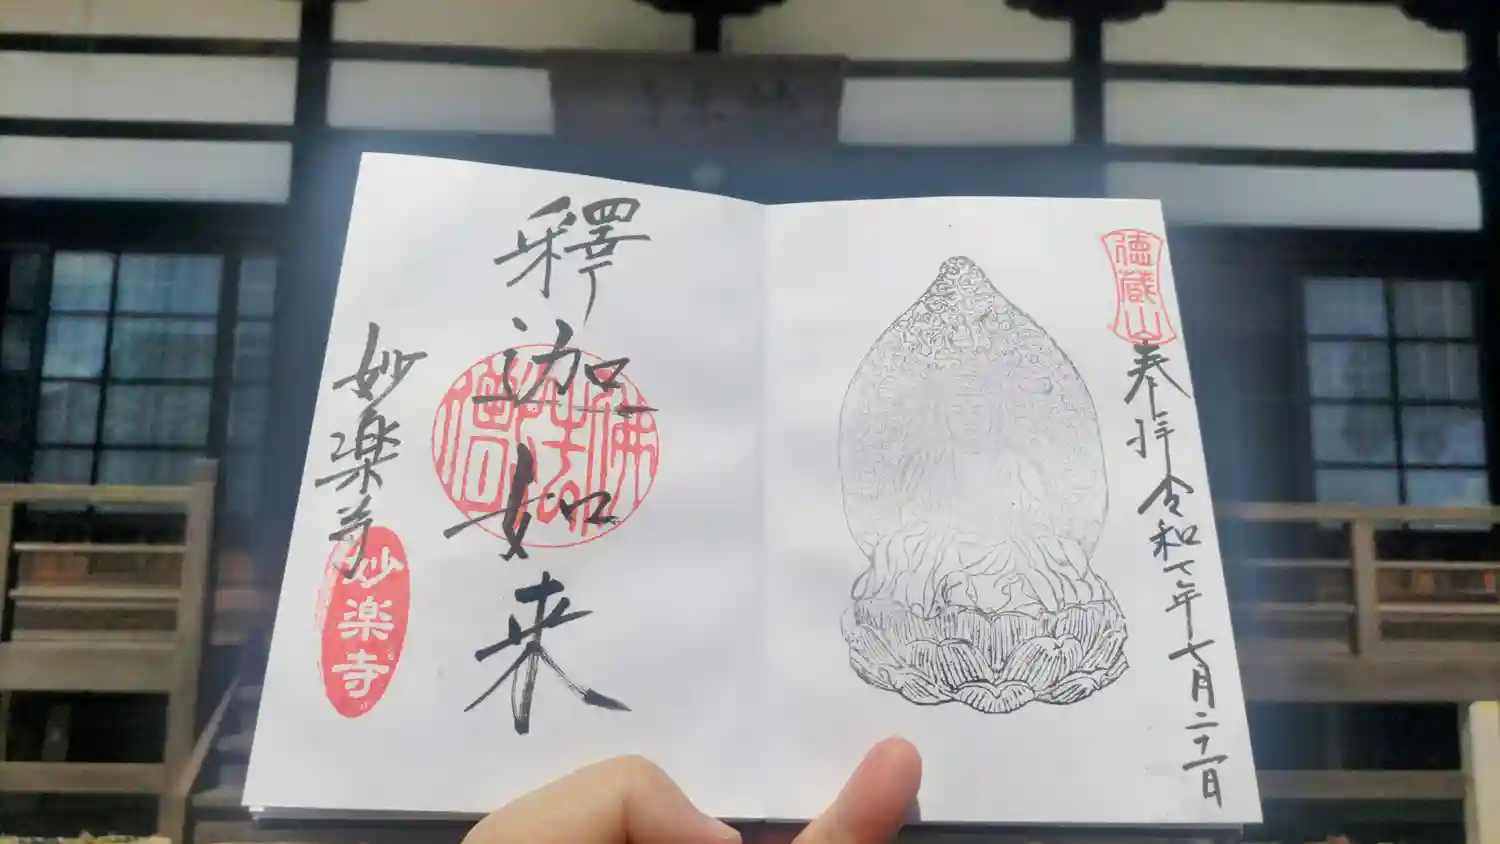 徳蔵山
奉拝 令和七年七月二十一日
釋迦如来
佛法僧寳
妙楽寺
妙楽寺